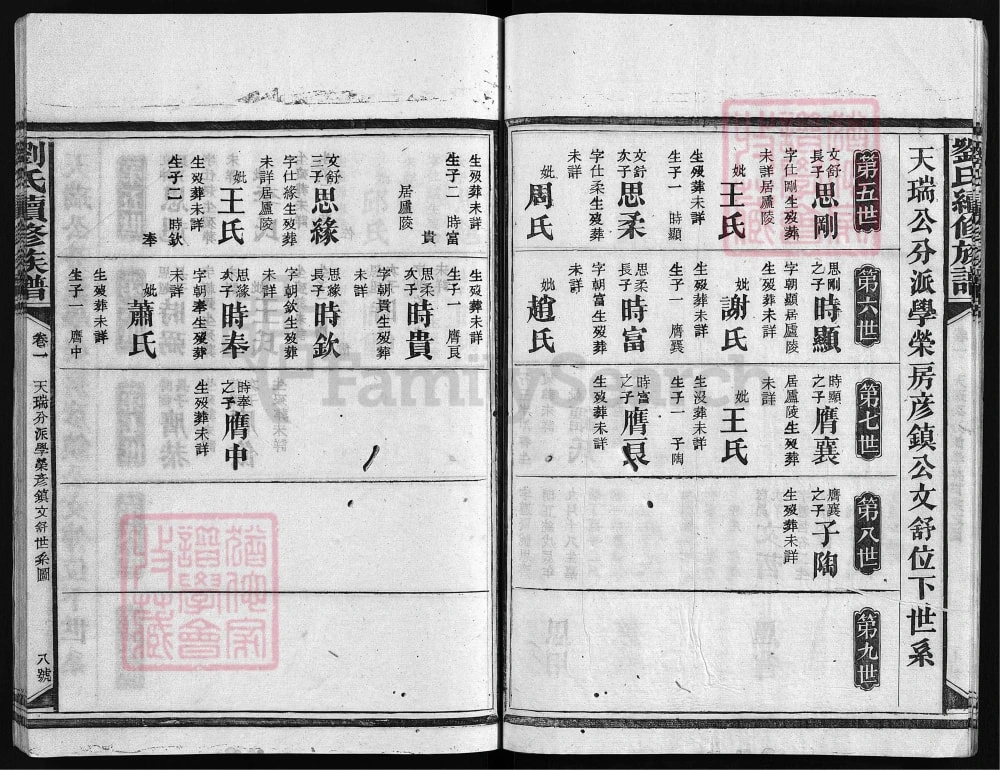 劉氏續修族譜
天瑞公分派學榮房彦鎮公文舒位下世系
第五世
文舒長子思剛
字仕剛生歿葬
未詳居廬陵
妣王氏
生歿葬未詳
生子一 時顯
文舒次子思柔
字仕柔生歿葬
未詳
妣周氏
第六世
思剛之子時顯
字朝顯居廬陵
生歿葬未詳
妣謝氏
生歿葬未詳
生子一 膺襄
思柔長子時富
字朝富生歿葬
未詳
妣趙氏
第七世
時顯之子膺襄
居廬陵生歿葬
未詳
妣王氏
生歿葬未詳
生子一 子陶
時富之子膺㫐
生歿葬未詳
第八世
膺襄之子子陶
生歿葬未詳
第九世
生歿葬未詳
生子二 時富
貴
居廬陵
文舒三子思緣
字仕緣生歿葬
未詳居廬陵
妣王氏
生歿葬未詳
生子二 時欽
奉
生歿葬未詳
生子一 膺㫐
思柔次子時貴
字朝貴生歿葬
未詳
思緣長子時欽
字朝欽生歿葬
未詳
思緣次子時奉
字朝奉生歿葬
未詳
妣蕭氏
生歿葬未詳
生子一 膺中
時奉之子膺中
生歿葬未詳
劉氏續修族譜
卷一
天瑞分派學榮彦鎮文舒世系圖
八號
FamilySearch